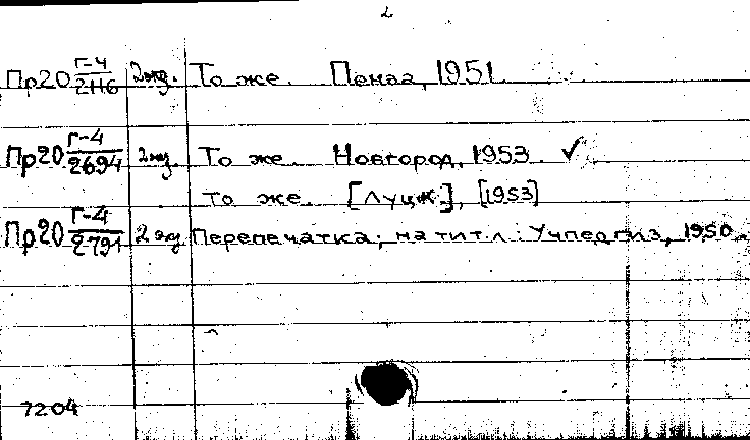 2
Пр20 Г-4/2116 2 экз. То же. Пенза, 1951.
Пр20 Г-4/2694 2 экз. То же. Новгород, 1953. ✓
То же. [Луцк], [1953]
Пр20 Г-4/2791 2 экз Перепечатка; на тит.л.: Учпедгиз, 1950.
7204